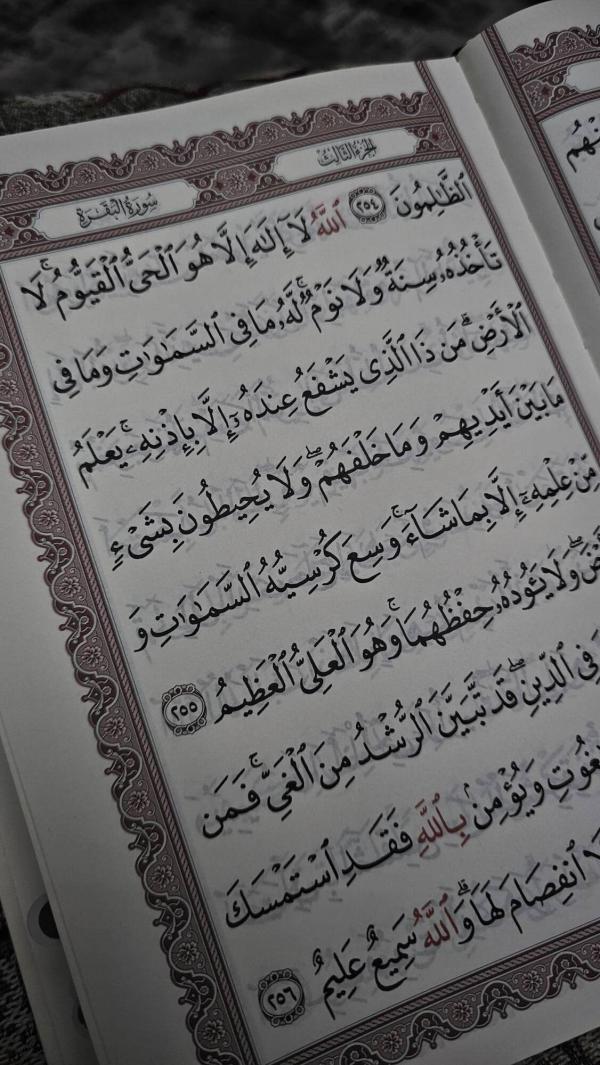 الجزء الثالث
سورة البقرة
ٱلظَّٰلِمُونَ ٢٥٤ ٱللَّهُ لَآ إِلَٰهَ إِلَّا هُوَ ٱلْحَىُّ ٱلْقَيُّومُ ۚ لَا
تَأْخُذُهُۥ سِنَةٌ وَلَا نَوْمٌ ۚ لَّهُۥ مَا فِى ٱلسَّمَٰوَٰتِ وَمَا فِى
ٱلْأَرْضِ ۗ مَن ذَا ٱلَّذِى يَشْفَعُ عِندَهُۥٓ إِلَّا بِإِذْنِهِۦ ۚ يَعْلَمُ
مَا بَيْنَ أَيْدِيهِمْ وَمَا خَلْفَهُمْ ۖ وَلَا يُحِيطُونَ بِشَىْءٍ
مِّنْ عِلْمِهِۦٓ إِلَّا بِمَا شَآءَ ۚ وَسِعَ كُرْسِيُّهُ ٱلسَّمَٰوَٰتِ وَ
وَلَا يَـُٔودُهُۥ حِفْظُهُمَا ۚ وَهُوَ ٱلْعَلِىُّ ٱلْعَظِيمُ ٢٥٥
فِى ٱلدِّينِ ۖ قَد تَّبَيَّنَ ٱلرُّشْدُ مِنَ ٱلْغَىِّ ۚ فَمَن
وَيُؤْمِنۢ بِٱللَّهِ فَقَدِ ٱسْتَمْسَكَ
ٱنفِصَامَ لَهَا ۗ وَٱللَّهُ سَمِيعٌ عَلِيمٌ ٢٥٦